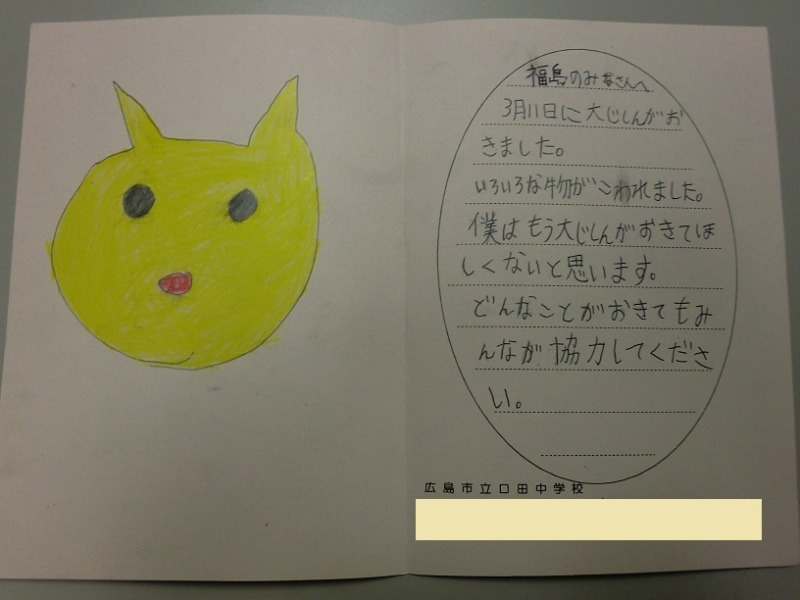 福島のみなさんへ
3月11日に大じしんがお
きました。
いろいろな物がこわれました。
僕はもう大じしんがおきてほ
しくないと思います。
どんなことがおきてもみ
んなが協力してくださ
い。
広島市立口田中学校